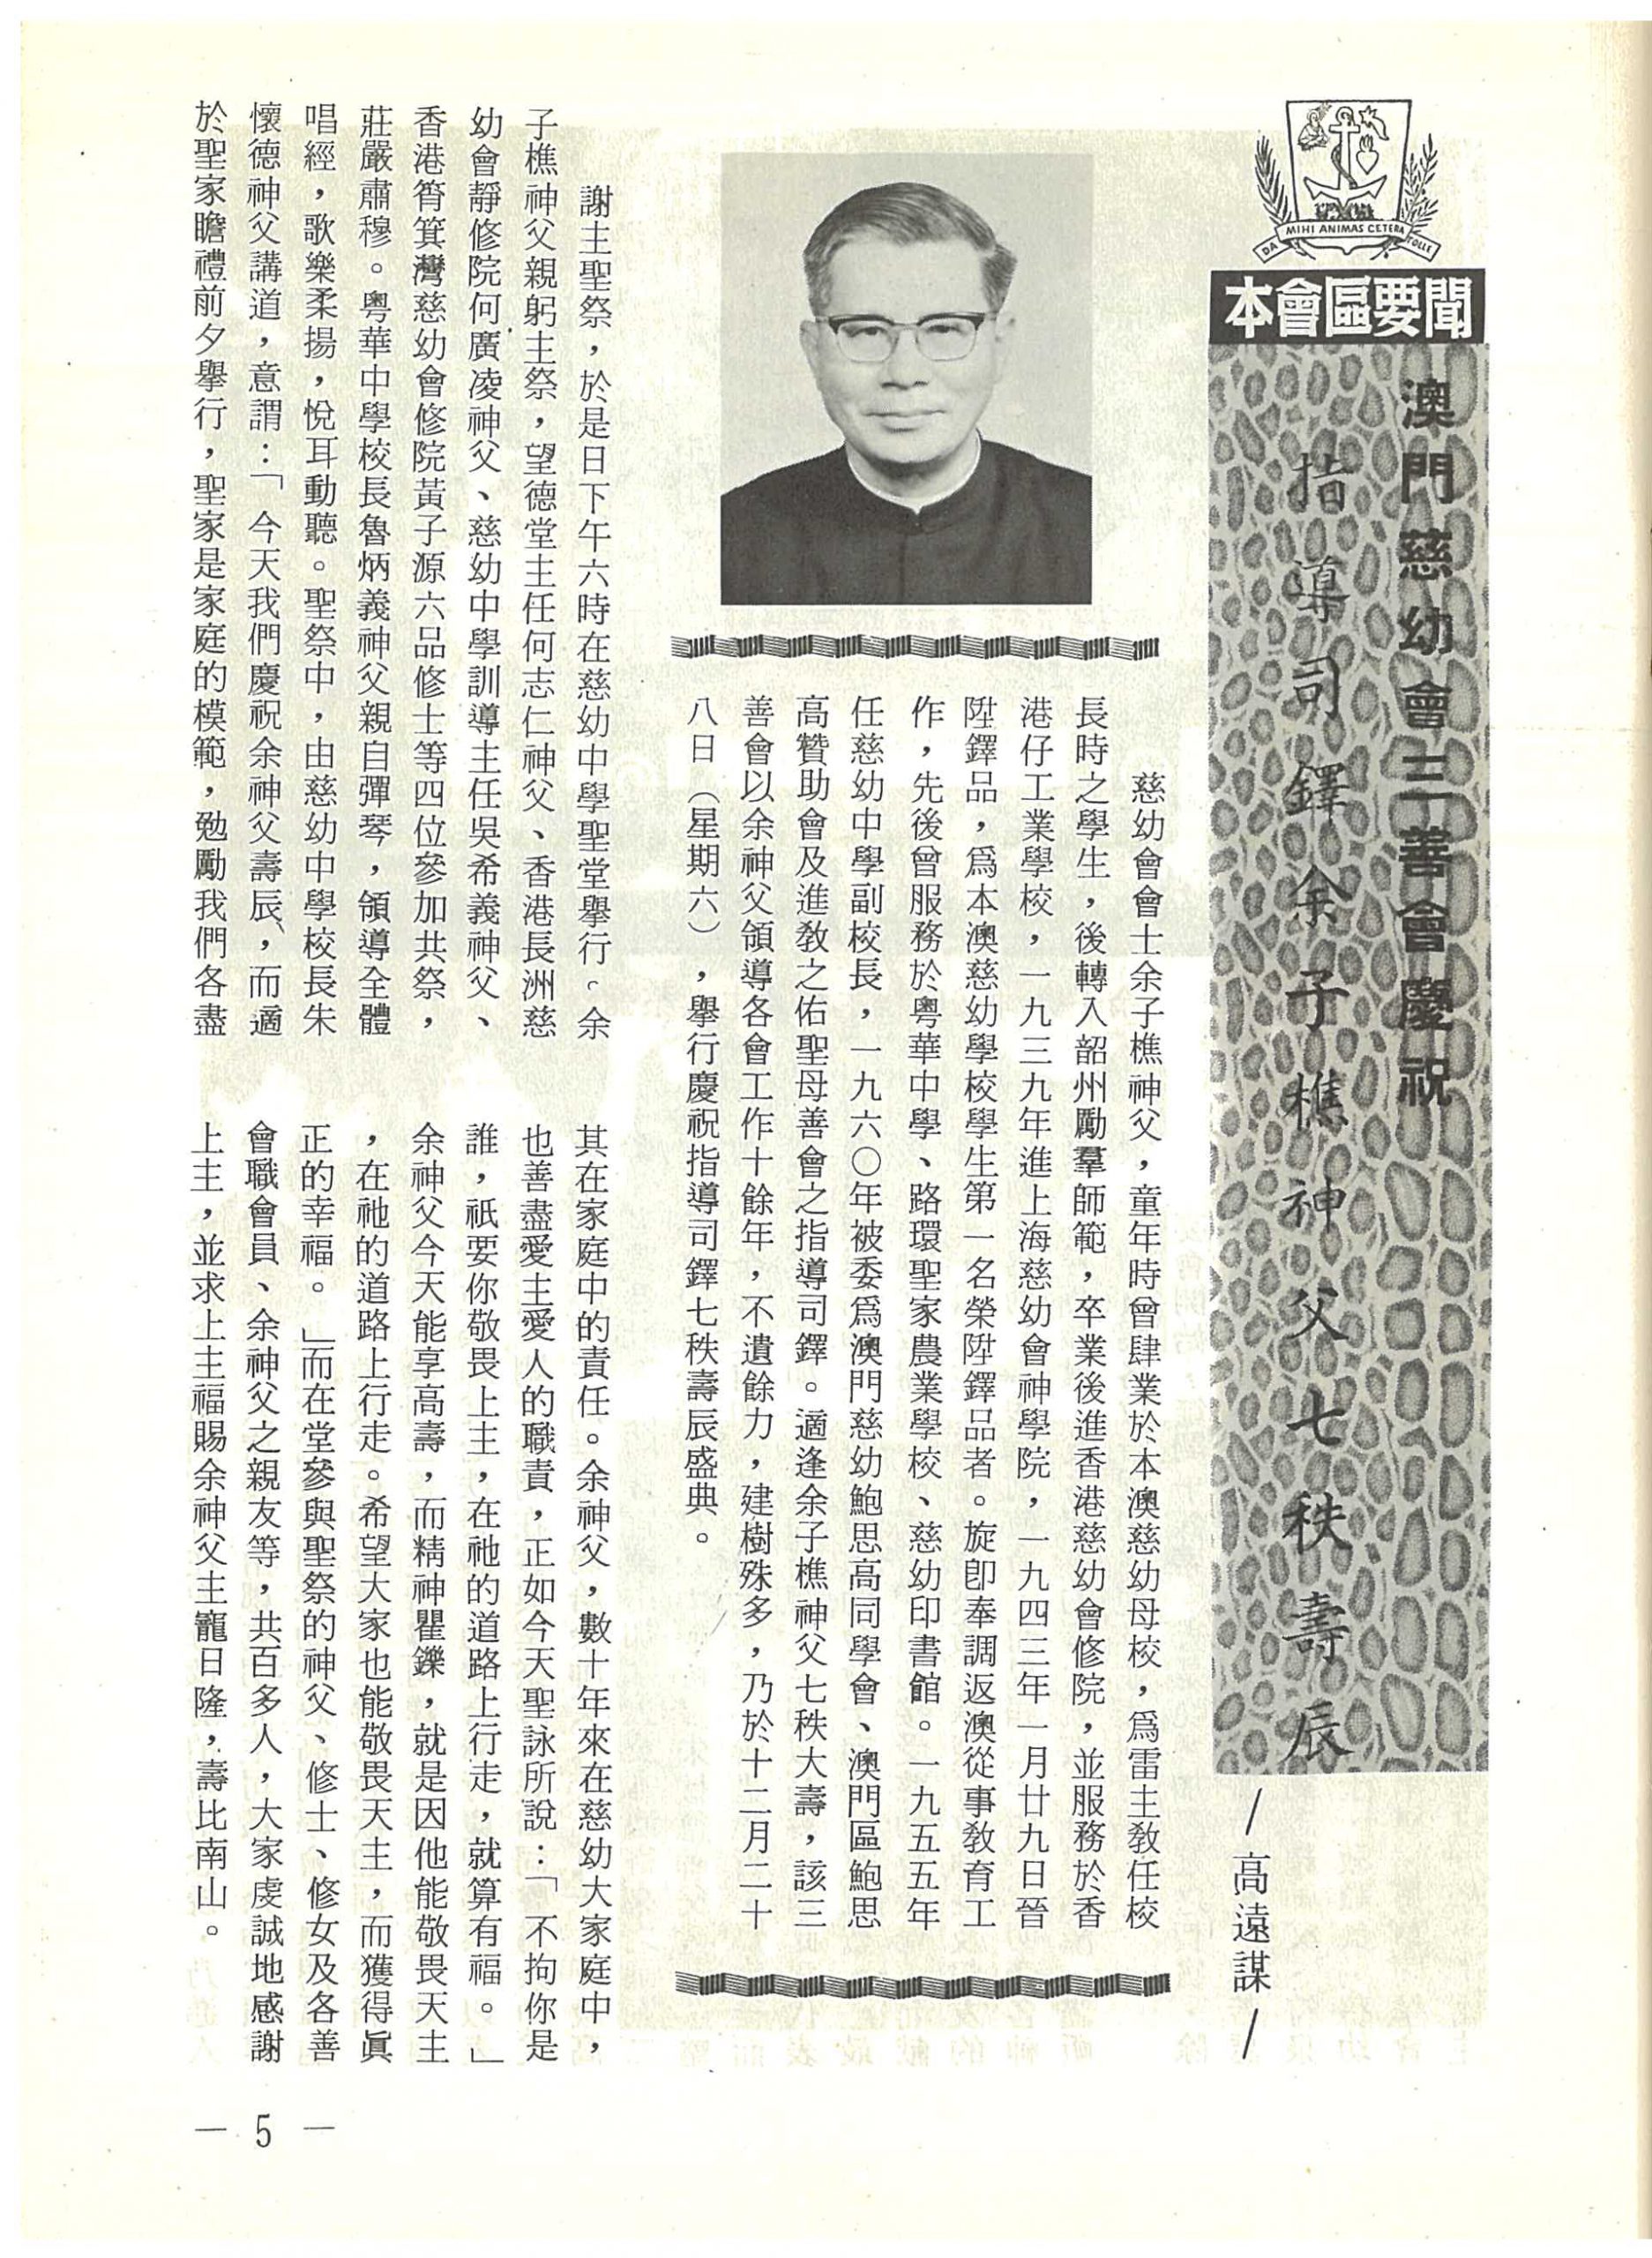 DA MIHI ANIMAS CETERA TOLLE
本會區要聞
澳門慈幼會三善會慶祝
指導司鐸余子樵神父七秩壽辰
/高遠謀/
慈幼會會士余子樵神父，童年時曾肆業於本澳慈幼母校，爲雷主教任校
長時之學生，後轉入韶州勵羣師範，卒業後進香港慈幼會修院，並服務於香
港仔工業學校，一九三九年進上海慈幼會神學院，一九四三年一月廿九日晉
陞鐸品，爲本澳慈幼學校學生第一名榮陞鐸品者。旋卽奉調返澳從事教育工
作，先後曾服務於粵華中學、路環聖家農業學校、慈幼印書館。一九五五年
任慈幼中學副校長，一九六〇年被委爲澳門慈幼鮑思高同學會、澳門區鮑思
高贊助會及進教之佑聖母善會之指導司鐸。適逢余子樵神父七秩大壽，該三
善會以余神父領導各會工作十餘年，不遺餘力，建樹殊多，乃於十二月二十
八日（星期六），舉行慶祝指導司鐸七秩壽辰盛典。
謝主聖祭，於是日下午六時在慈幼中學聖堂舉行。余
子樵神父親躬主祭，望德堂主任何志仁神父、香港長洲慈
幼會靜修院何廣凌神父、慈幼中學訓導主任吳希義神父、
香港筲箕灣慈幼會修院黃子源六品修士等四位參加共祭，
莊嚴肅穆。粵華中學校長魯炳義神父親自彈琴，領導全體
唱經，歌樂柔揚，悅耳動聽。聖祭中，由慈幼中學校長朱
懷德神父講道，意謂：「今天我們慶祝余神父壽辰，而適
於聖家瞻禮前夕舉行，聖家是家庭的模範，勉勵我們各盡
其在家庭中的責任。余神父，數十年來在慈幼大家庭中，
也善盡愛主愛人的職責，正如今天聖詠所說：「不拘你是
誰，祇要你敬畏上主，在祂的道路上行走，就算有福。」
余神父今天能享高壽，而精神瞿鑠，就是因他能敬畏天主
，在祂的道路上行走。希望大家也能敬畏天主，而獲得眞
正的幸福。」而在堂參與聖祭的神父、修士、修女及各善
會職會員、余神父之親友等，共百多人，大家虔誠地感謝
上主，並求上主福賜余神父主寵日隆，壽比南山。
— 5 —